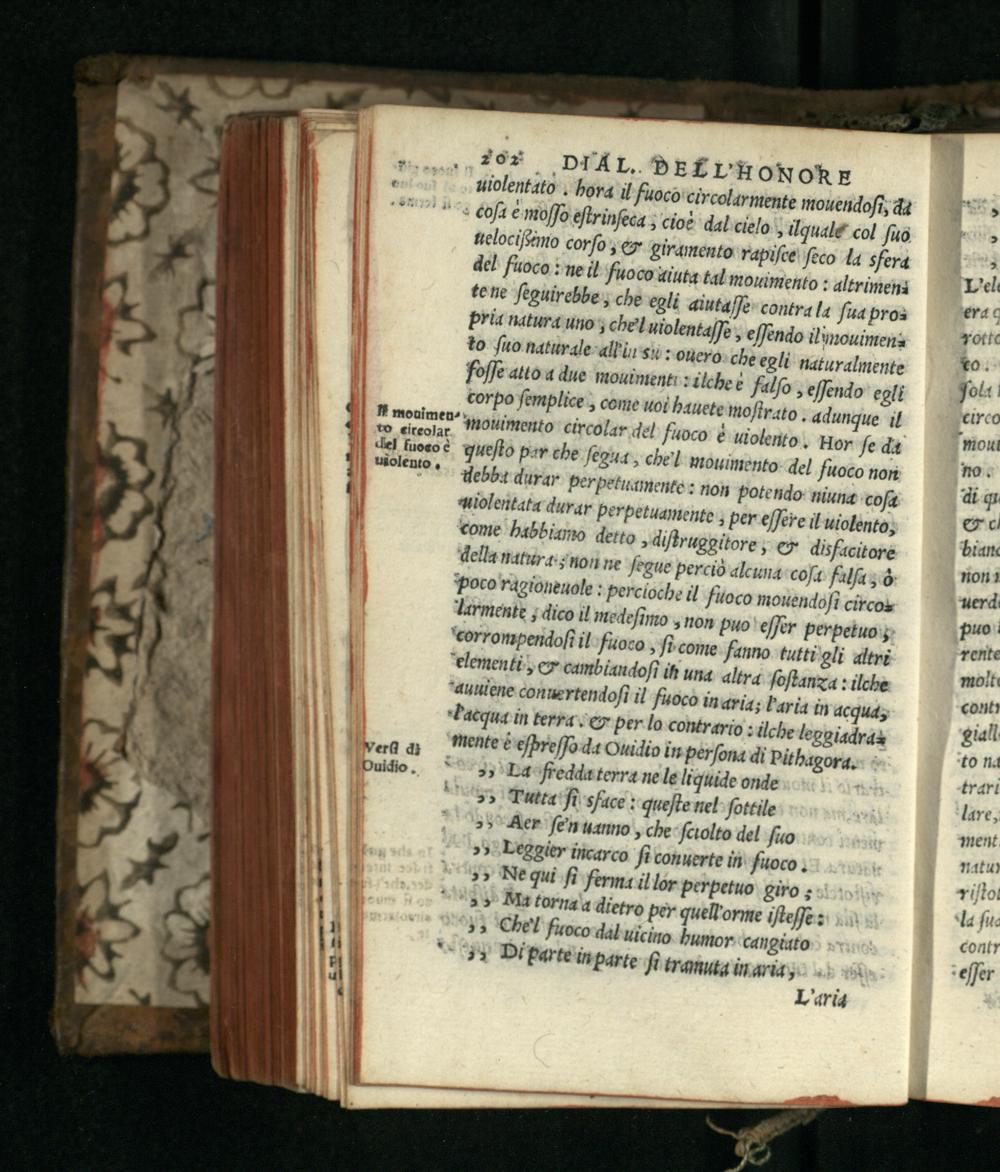 202 DIAL. DELL'HONORE
uiolentato. hora il fuoco circolarmente mouendosi, da
cosa è mosso estrinseca, cioè dal cielo, ilquale col suo
uelocißimo corso, & giramento rapisce seco la sfera
del fuoco: ne il fuoco aiuta tal mouimento: altrimen=
te ne seguirebbe, che egli aiutasse contra la sua pro=
pria natura uno, che'l uiolentasse, essendo il mouimen=
to suo naturale all'in sù: ouero che egli naturalmente
fosse atto a due mouimenti: ilche è falso, essendo egli
corpo semplice, come uoi hauete mostrato. adunque il
mouimento circolar del fuoco è uiolento. Hor se da
questo par che segua, che'l mouimento del fuoco non
debba durar perpetuamente: non potendo niuna cosa
uiolentata durar perpetuamente, per essere il uiolento,
come habbiamo detto, distruggitore, & disfacitore
della natura; non ne segue perciò alcuna cosa falsa, ò
poco ragioneuole: percioche il fuoco mouendosi circo=
larmente, dico il medesimo, non puo esser perpetuo;
corrompendosi il fuoco, si come fanno tutti gli altri
elementi, & cambiandosi in una altra sostanza: ilche
auuiene conuertendosi il fuoco in aria; l'aria in acqua,
l'acqua in terra. & per lo contrario: ilche leggiadra=
mente è espresso da Ouidio in persona di Pithagora.
,, La fredda terra ne le liquide onde
,, Tutta si sface: queste nel sottile
,, Aer se'n uanno, che sciolto del suo
,, Leggier incarco si conuerte in fuoco.
,, Ne qui si ferma il lor perpetuo giro;
,, Ma torna a dietro per quell'orme istesse:
,, Che'l fuoco dal uicino humor cangiato
,, Di parte in parte si tramuta in aria,
L'aria
Il mouimen-
to circolar
del fuoco è
uiolento.
Versi di
Ouidio.
L'ele
era q
rotto
co.
sola
circo
moui
no.
di qu
& ch
bianc
non n
uerd
puo
rente
molt
contr
giall
to na
trari
lare,
ment
natur
ristot
la sua
contr
esser